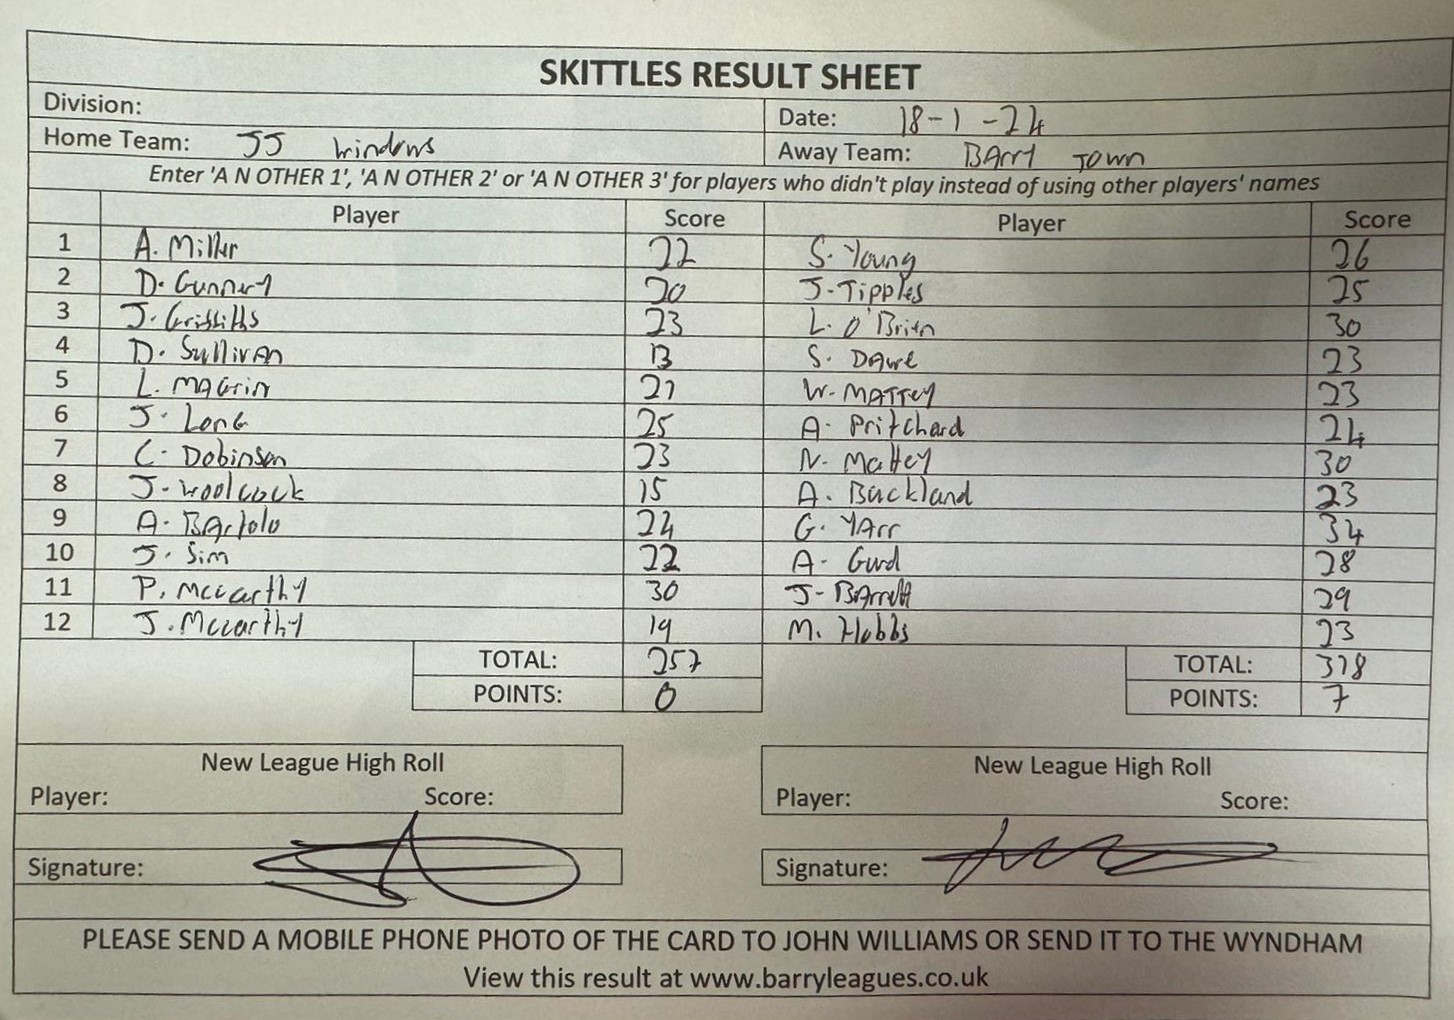 SKITTLES RESULT SHEET
Division: Date: 18-1-24
Home Team: JJ Windows Away Team: BArry Town
Enter 'A N OTHER 1', 'A N OTHER 2' or 'A N OTHER 3' for players who didn't play instead of using other players' names
Player Score Player Score
1 A. Miller 22 S. Young 26
2 D. Gunnery 20 J. Tipples 25
3 J. Griffiths 23 L. O'Brien 30
4 D. Sullivan 13 S. Dawe 23
5 L. Magrin 21 W. Mattey 23
6 J. Long 25 A. Pritchard 24
7 C. Dobinson 23 N. Mattey 30
8 J. Woolcock 15 A. Buckland 23
9 A. BArtolo 24 G. YArr 34
10 J. Sim 22 A. Gurd 28
11 P. McCarthy 30 J. BArrett 29
12 J. McCarthy 19 M. Hobbs 23
TOTAL: 257 TOTAL: 318
POINTS: 0 POINTS: 7
New League High Roll New League High Roll
Player: Score: Player: Score:
Signature: Signature:
PLEASE SEND A MOBILE PHONE PHOTO OF THE CARD TO JOHN WILLIAMS OR SEND IT TO THE WYNDHAM
View this result at www.barryleagues.co.uk